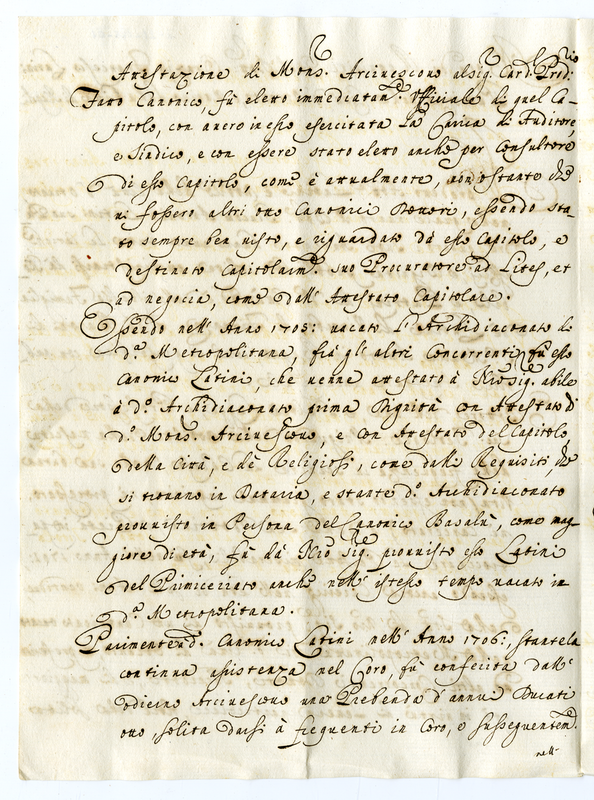 Attestazione di Mons. Arciuescouo al Sig. Card. Prod.rio
Fatto Canonico, fù eletto immediatam.e Officiale di quel Ca-
pitolo, con auer in esso esercitata la Carica di Auditore,
e Sindico, e con essere stato eletto anche per Consultore
di esso Capitolo, come è attualmente, non ostante che
ui fossero altri otto Canonici Dottori, essendo sta-
to sempre ben uisto, e riguardato dà esso Capitolo, e
destinato Capitolarm.e suo Procuratore ad Lites, et
ad negocia, come dall' Attestato Capitolare.
Essendo nell' Anno 1705: uacato l' Archidiaconato di
d.a Metropolitana, frà gl' altri Concorrenti fù esso
Canonico Latini, che uenne attestato à Nro Sig.re abile
à d.o Archidiaconato prima Dignità con Attestato di
d.o Mons. Arciuescouo, e con Attestato del Capitolo,
della Città, e de Religiosi, come dalli Requisiti che
si trouano in Dataria, e stante d.o Archidiaconato
prouuisto in Persona del Canonico Basalù, come mag-
giore di età, fù dà Nro Sig.re prouuisto esso Latini
del Primiceriato anche nell' istesso tempo uacato in
d.a Metropolitana.
Parimente d. Canonico Latini nell' Anno 1706:, stante la
continua assistenza nel Coro, fù conferita dall'
odierno Arciuescouo una Prebenda d' annui Ducati
otto, solita darsi à frequenti in Coro, e susseguentem.e
nell-